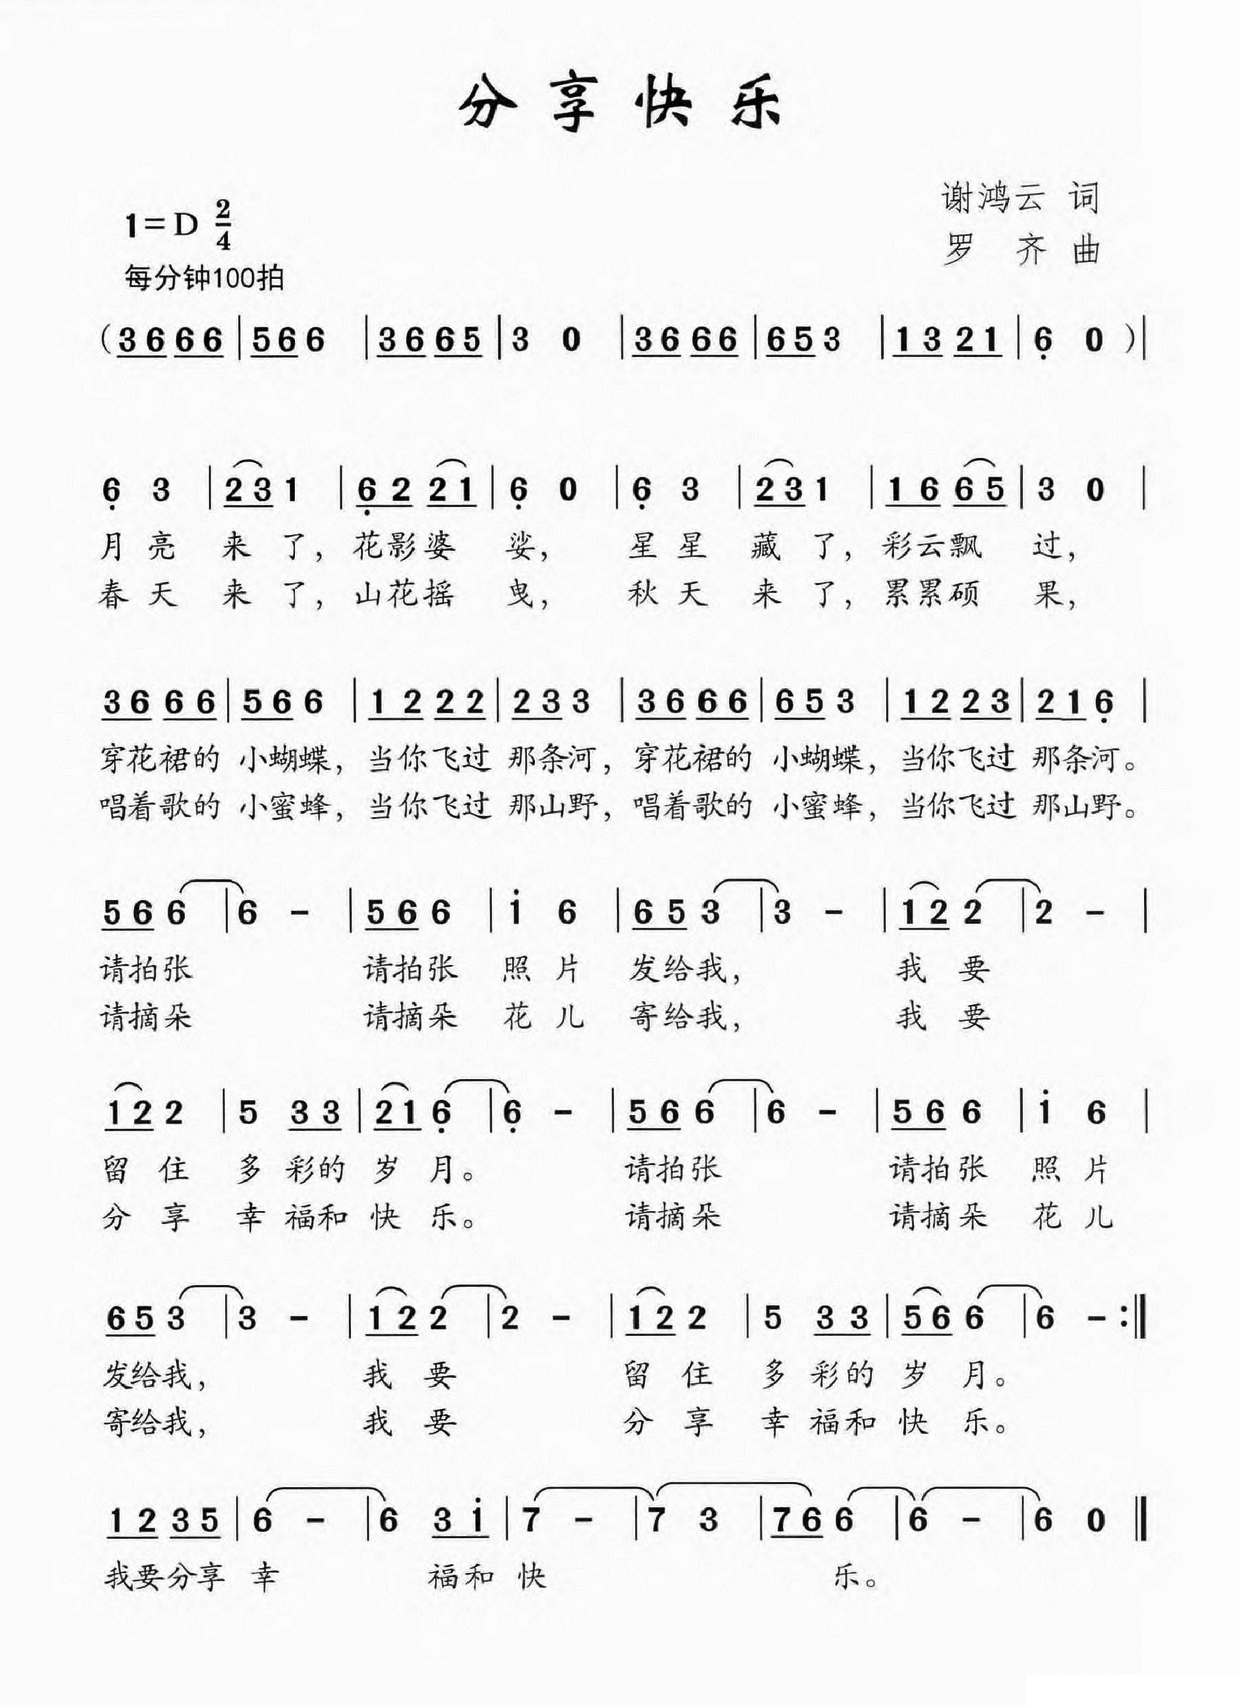 分享快乐
谢鸿云 词
1=D 2/4
罗 齐 曲
每分钟100拍
(3666|566 |3665|3 0 |3666|653 |1321|6̣ 0 )|
6̣ 3 |231 |6̣2 21|6̣ 0 |6̣ 3 |231 |1665|3 0 |
月亮 来了，花影婆 娑， 星星 藏了，彩云飘 过，
春天 来了，山花摇 曳， 秋天 来了，累累硕 果，
3666|566 |1222|233 |3666|653 |1223|216̣ |
穿花裙的 小蝴蝶，当你飞过 那条河，穿花裙的 小蝴蝶，当你飞过 那条河。
唱着歌的 小蜜蜂，当你飞过 那山野，唱着歌的 小蜜蜂，当你飞过 那山野。
566 |6 - |566 |1̇ 6 |653 |3 - |122 |2 - |
请拍张 请拍张 照片 发给我， 我要
请摘朵 请摘朵 花儿 寄给我， 我要
122 |5 33|216̣ |6̣ - |566 |6 - |566 |1̇ 6 |
留住 多彩的 岁月。 请拍张 请拍张 照片
分享 幸福和 快乐。 请摘朵 请摘朵 花儿
653 |3 - |122 |2 - |122 |5 33|566 |6 - :‖
发给我， 我要 留住 多彩的 岁月。
寄给我， 我要 分享 幸福和 快乐。
1235|6 - |6 31̇|7 - |7 3 |766 |6 - |6 0 ‖
我要分享 幸 福和 快 乐。